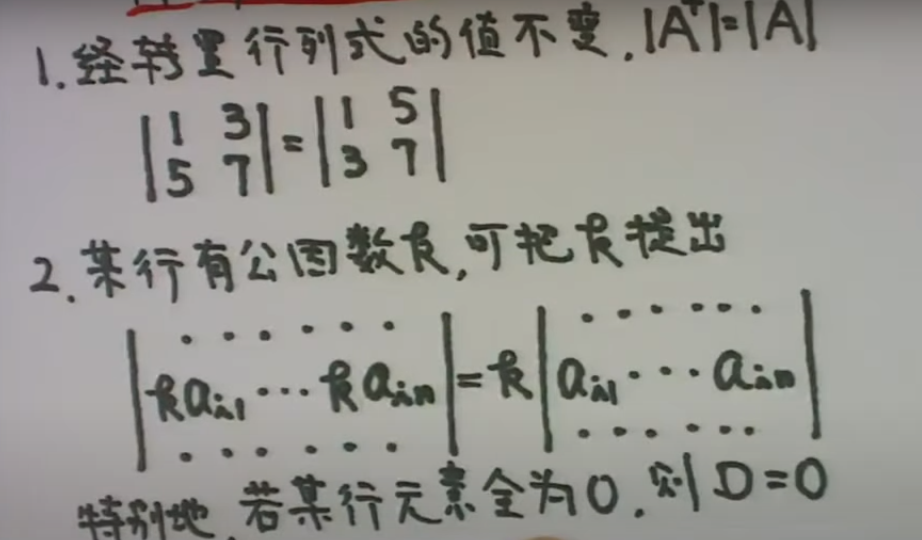 1. 经转置行列式的值不变. |Aᵀ|=|A|
|1 3| = |1 5|
|5 7|   |3 7|
2. 某行有公因数k, 可把k提出
|· · · · · ·|   |· · · · · ·|
|kaᵢ₁ ··· kaᵢₙ| = k|aᵢ₁ ··· aᵢₙ|
|· · · · · ·|   |· · · · · ·|
特别地, 若某行元素全为0, 则D=0